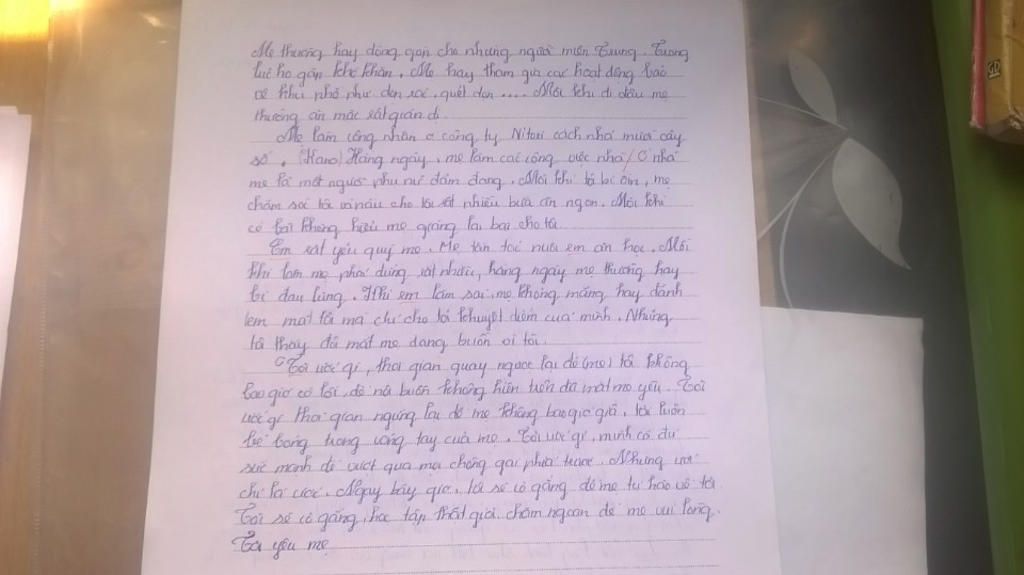 Mẹ thường hay đóng góp cho những người miền Trung. Trong
lúc họ gặp khó khăn. Mẹ hay tham gia các hoạt động bảo
vệ khu phố như dọn rác, quét dọn .... Mỗi khi đi đâu mẹ
thường ăn mặc rất giản dị.
Mẹ làm công nhân ở công ty Nitori cách nhà mười cây
số. Hàng ngày, mẹ làm các công việc nhà / Ở nhà
mẹ là một người phụ nữ đảm đang. Mỗi khi tôi bị ốm, mẹ
chăm sóc tôi và nấu cho tôi rất nhiều bữa ăn ngon. Mỗi khi
có bài không hiểu mẹ giảng lại bài cho tôi.
Em rất yêu quý mẹ. Mẹ tần tảo nuôi em ăn học. Mỗi
khi làm mẹ phải đứng rất nhiều, hàng ngày mẹ thường hay
bị đau lưng. Khi em làm sai, mẹ không mắng hay đánh
em mà chỉ cho tôi khuyết điểm của mình. Nhưng
tôi thấy đôi mắt mẹ đang buồn vì tôi.
"Tôi ước gì, thời gian quay ngược lại để (mẹ) tôi không
bao giờ có lỗi, để nỗi buồn không hiện trên đôi mắt mẹ yêu. Tôi
ước gì thời gian ngừng lại để mẹ không bao giờ già, tôi luôn
bé bỏng trong vòng tay của mẹ. Tôi ước gì, mình có đủ
sức mạnh để vượt qua mọi chông gai phía trước. Nhưng ước
chỉ là ước. Ngay bây giờ, tôi sẽ cố gắng để mẹ tự hào về tôi.
Tôi sẽ cố gắng, học tập thật giỏi, chăm ngoan để mẹ vui lòng.
Tôi yêu mẹ